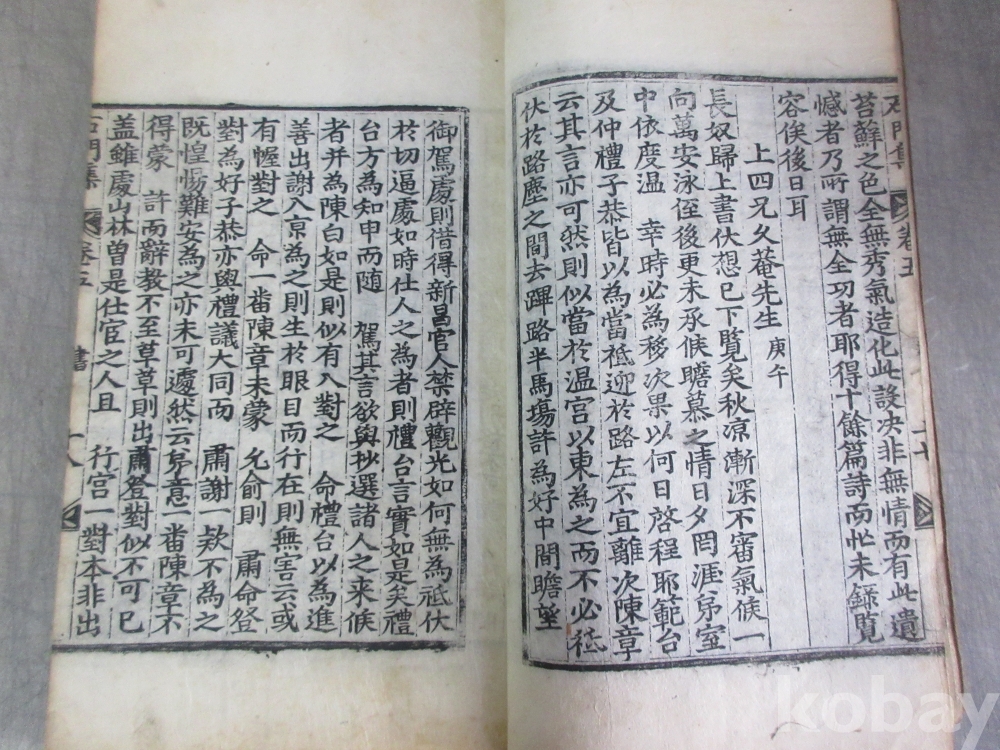 石門集 卷五 十七
苔蘚之色全無秀氣造化此設决非無情而有此遺
憾者乃所謂無全功者耶得十餘篇詩而忙未錄覽
容俟後日耳
上四兄久菴先生 庚午
長奴歸上書伏想已下覽矣秋凉漸深不審氣候一
向萬安泳侄後更未承候瞻慕之情日夕罔涯弟室
中依度溫 幸時必為移次果以何日啓程耶範台
及仲禮子恭皆以為當祗迎於路左不宜離次陳章
云其言亦可然則似當於溫宮以東為之而不必祗
伏於路塵之間去蹕路半馬塲許為好中間瞻望
御駕處則借得新昌官人禁辟觀光如何無為祗伏
於切逼處如時仕人之為者則禮台言實如是矣禮
台方為知申而隨 駕其言欲與抄選諸人之来候
者并為陳白如是則似有入對之 命禮台以為進
善出謝入京為之則生於眼目而行在則無害云或
有幄對之 命一番陳章未蒙 允俞則 肅命登
對為好子恭亦與禮議大同而 肅謝一欵不為之
既惶惕難安為之亦未可遽然云弟意一番陳章不
得蒙 許而辭教不至草草則出肅登對似不可已
盖雖處山林曾是仕宦之人且 行宮一對本非出
石門集 卷五 書 十八
kobay